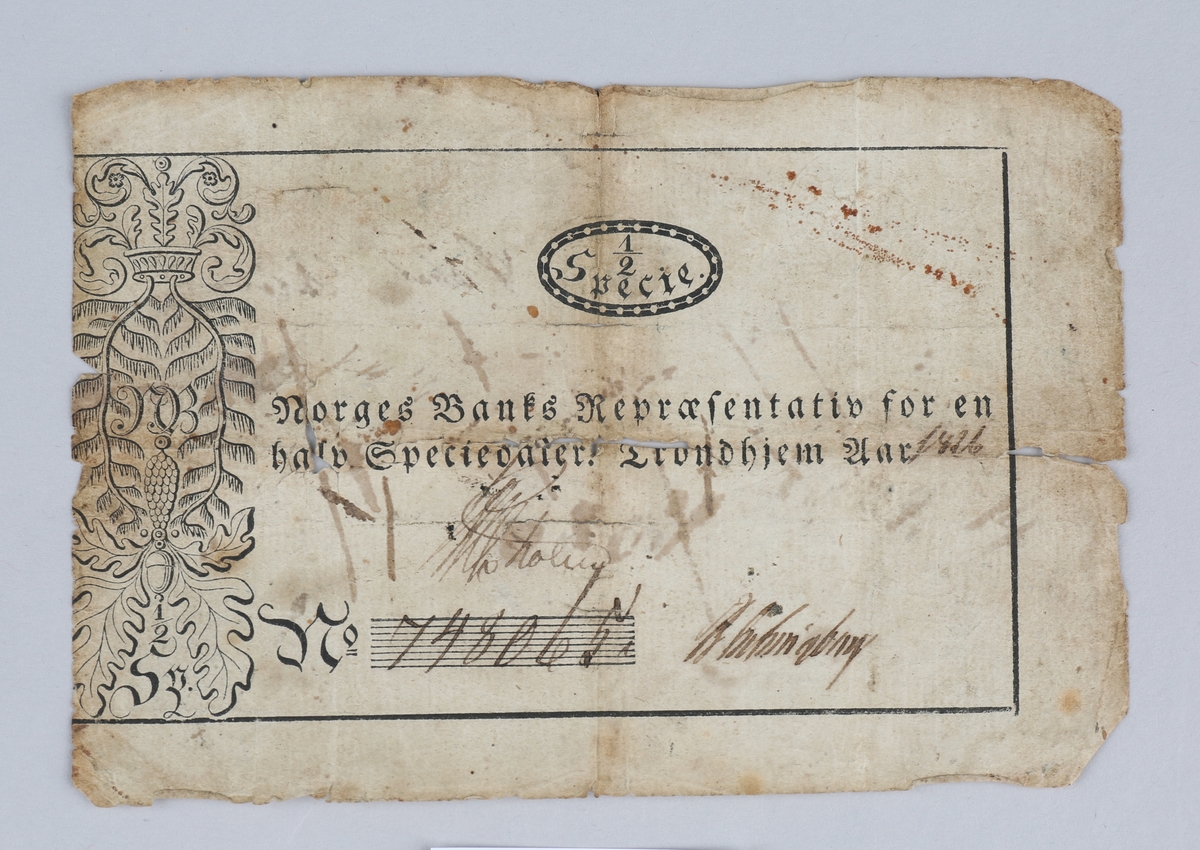 1/2
Specie.
NB
Norges Banks Repræsentativ for en
halv Speciedaler. Trondhjem Aar 1826
No 748065
1/2
Sp.